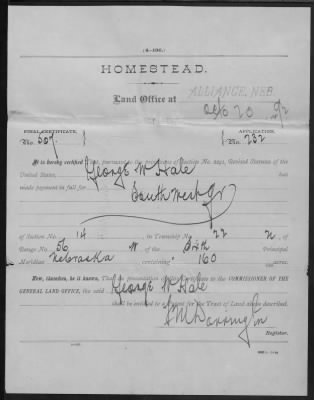 (4-196.)
HOMESTEAD.
Land Office at ALLIANCE, NEB.
Oct 20 1892
FINAL CERTIFICATE, APPLICATION,
No. 507. No. 232
It is hereby certified That, pursuant to the provisions of Section No. 2291, Revised Statutes of the
United States, George W Hale
has made payment in full for
South West Qr
of Section No. 14 in Township No. 22 N of
Range No. 56 W of the Sixth Principal
Meridian Nebraska containing 160 acres.
Now, therefore, be it known, That on presentation of this Certificate to the COMMISSIONER OF THE
GENERAL LAND OFFICE, the said George W Hale
shall be entitled to a Patent for the Tract of Land above described.
F M Dorrington
Register.